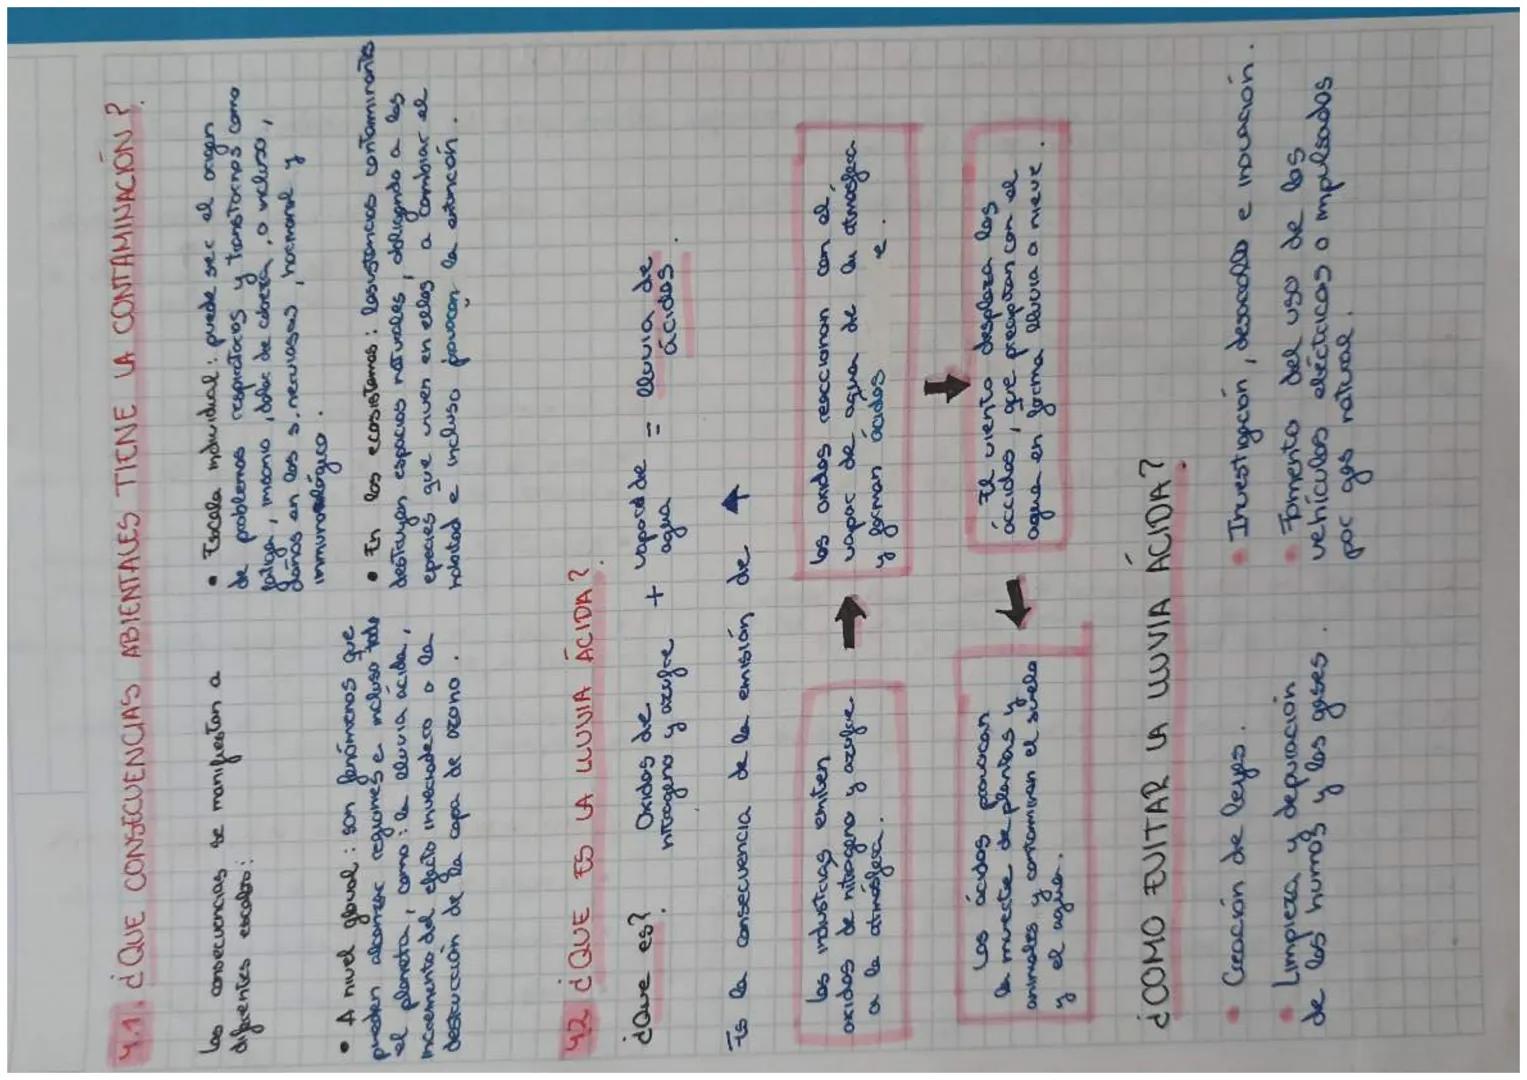 4.1. ¿QUE CONSECUENCIAS ABIENTALES TIENE LA CONTAMINACIÓN?
Las consecuencias se manifiestan a
diferentes escalas:
• A nivel gloval: son fenómenos que
pueden alcanzar regiones e incluso todo
el planeta, como: la lluvia ácida,
incremento del efecto invernadero o la
destrucción de la capa de ozono.
• Escala individual: puede ser el origen
de problemas respiratorios y transtornos como
fatiga, insonio, dolor de cabeza, o incluso,
daños en los s. nerviosos, hormonal y
inmunológico.
• En los ecosistemas: las sustancias contaminantes
destruyen espacios naturales, obligando a las
epecies que viven en ellos, a cambiar el
habitad e incluso provocan la extinción.
4.2 ¿QUE ES LA LLUVIA ÁCIDA?
¿Que es?
Oxidos de
nitrogeno y azufre
+ vapor de
agua
= lluvia de
ácidos.
Es la consecuencia de la emisión de
Las industrias emiten
oxidos de nitrogeno y azufre
a la atmósfera.
los oxidos reaccionan con el
vapor de agua de la atmosfera
y forman ácidos e.
El viento desplaza los
ácidos, que precipitan con el
agua en forma lluvia o nieve.
Los ácidos provocan
la muerte de plantas y
animales y contaminan el suelo
y el agua.
¿COMO EVITAR LA LLUVIA ÁCIDA?
• Creación de leyes.
• Limpieza y depuración
de los humos y los gases.
• Investigación, desarrollo e inovación.
• Fomento del uso de los
vehículos eléctricos o impulsados
por gas natural.